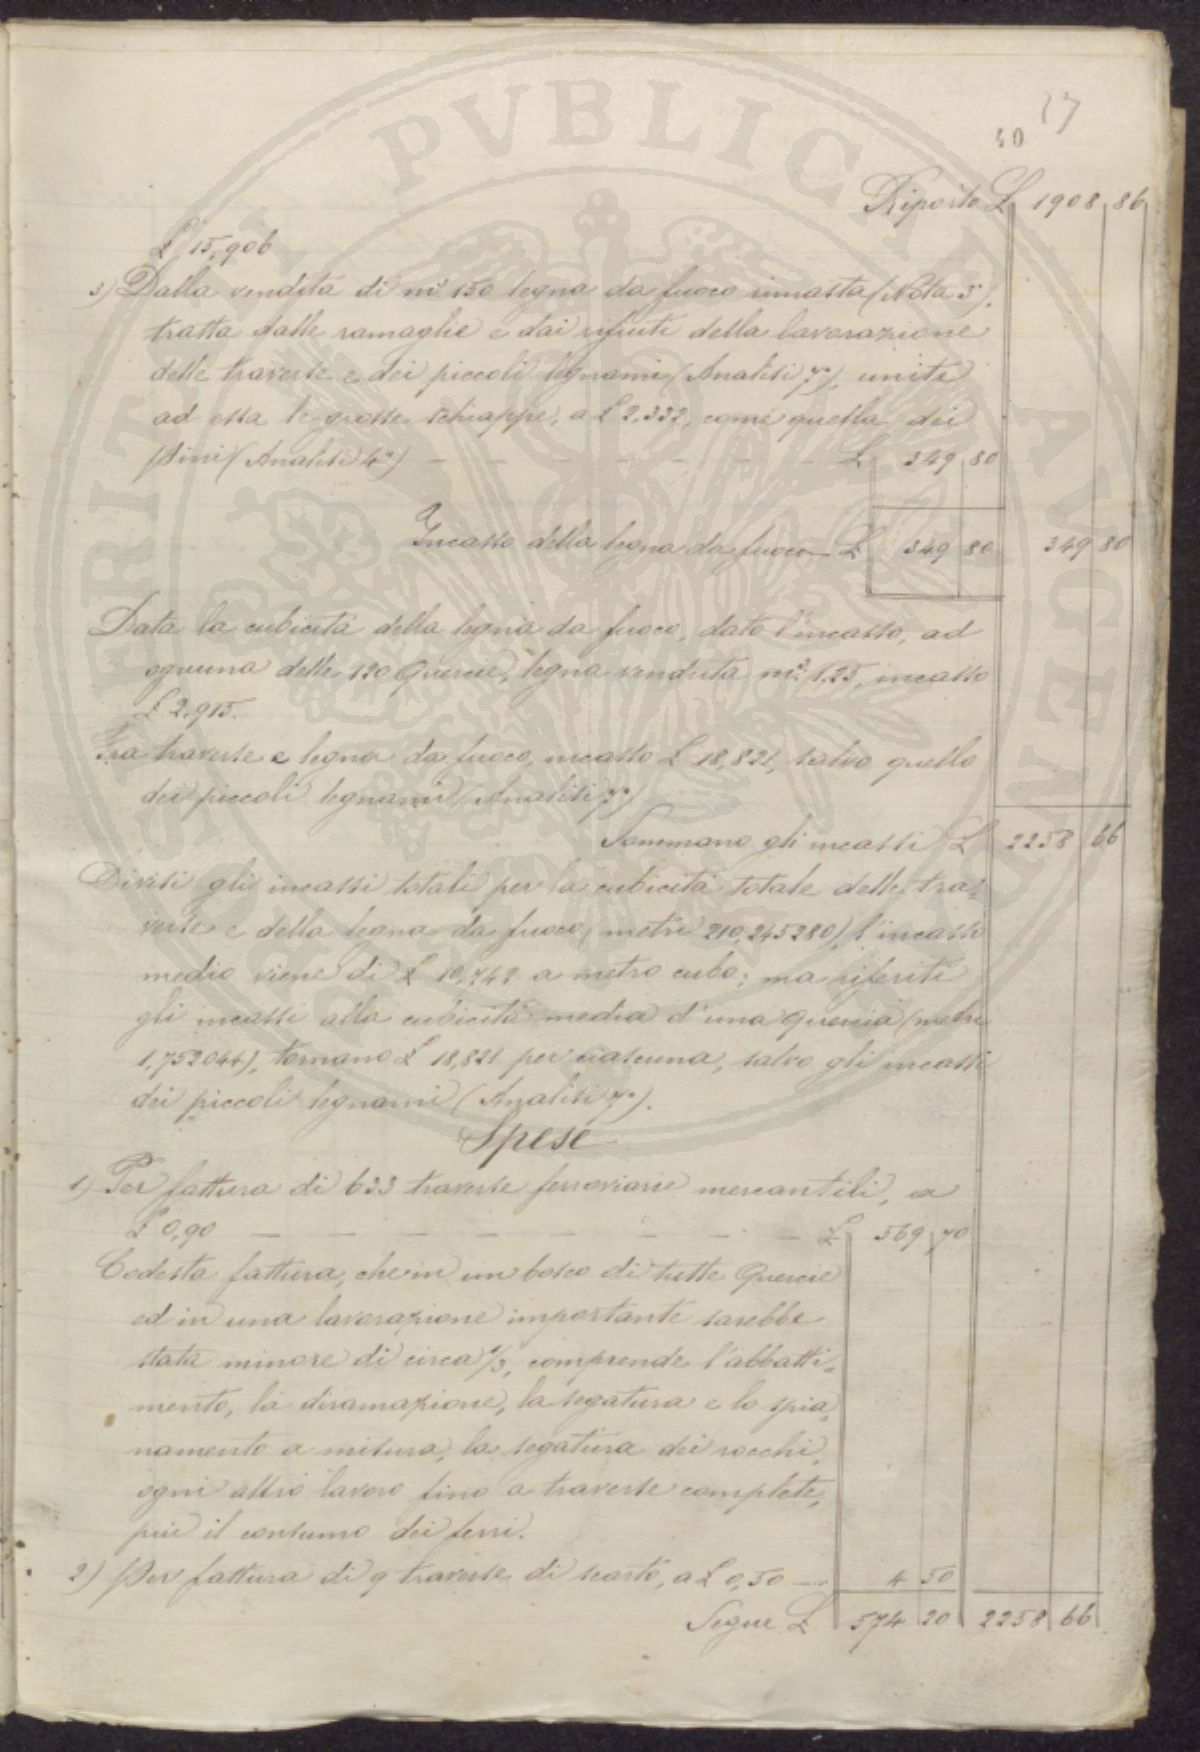 17
40
Riporto £ 1908 86
£ 15,906
3) Dalla vendita di m.³ 150 legna da fuoco rimasta (Nota 5ª),
tratta dalle ramaglie e dai rifiuti della lavorazione
delle traverse e dei piccoli legnami (Analisi 7ª), unite
ad essa le grosse schiappe, a £ 2,332, come quella dei
Pini (Analisi 4ª) — — — — — — £ 349 80
Incasso della legna da fuoco £ 349 80 349 80
Data la cubicità della legna da fuoco, dato l'incasso, ad
ognuna delle 120 Quercie, legna venduta m.³ 1,25, incasso
£ 2,915.
Tra traverse e legna da fuoco, incasso £ 18,821, salvo quello
dei piccoli legnami (Analisi 7ª)
Sommano gli incassi £ 2258 66
Divisi gli incassi totali per la cubicità totale delle tra=
verse e della legna da fuoco (metri 210,245280) l'incasso
medio viene di £ 10,742 a metro cubo; ma riferiti
gli incassi alla cubicità media d'una Quercia (metri
1,752044), tornano £ 18,821 per ciascuna, salvo gli incassi
dei piccoli legnami (Analisi 7ª).
Spese
1) Per fattura di 633 traverse ferroviarie mercantili, a
£ 0,90 — — — — — — — — £ 569 70
Codesta fattura, che in un bosco di tutte Quercie
ed in una lavorazione importante sarebbe
stata minore di circa 1/3, comprende l'abbatti=
mento, la diramazione, la segatura e lo spia=
namento a misura, la segatura dei rocchi,
ogni altro lavoro fino a traverse complete,
più il consumo dei ferri.
2) Per fattura di 9 traverse di scarto, a £ 0,50 — 4 50
Segue £ 574 20 2258 66
SPIRITVI PVBLICAE AVGENDO